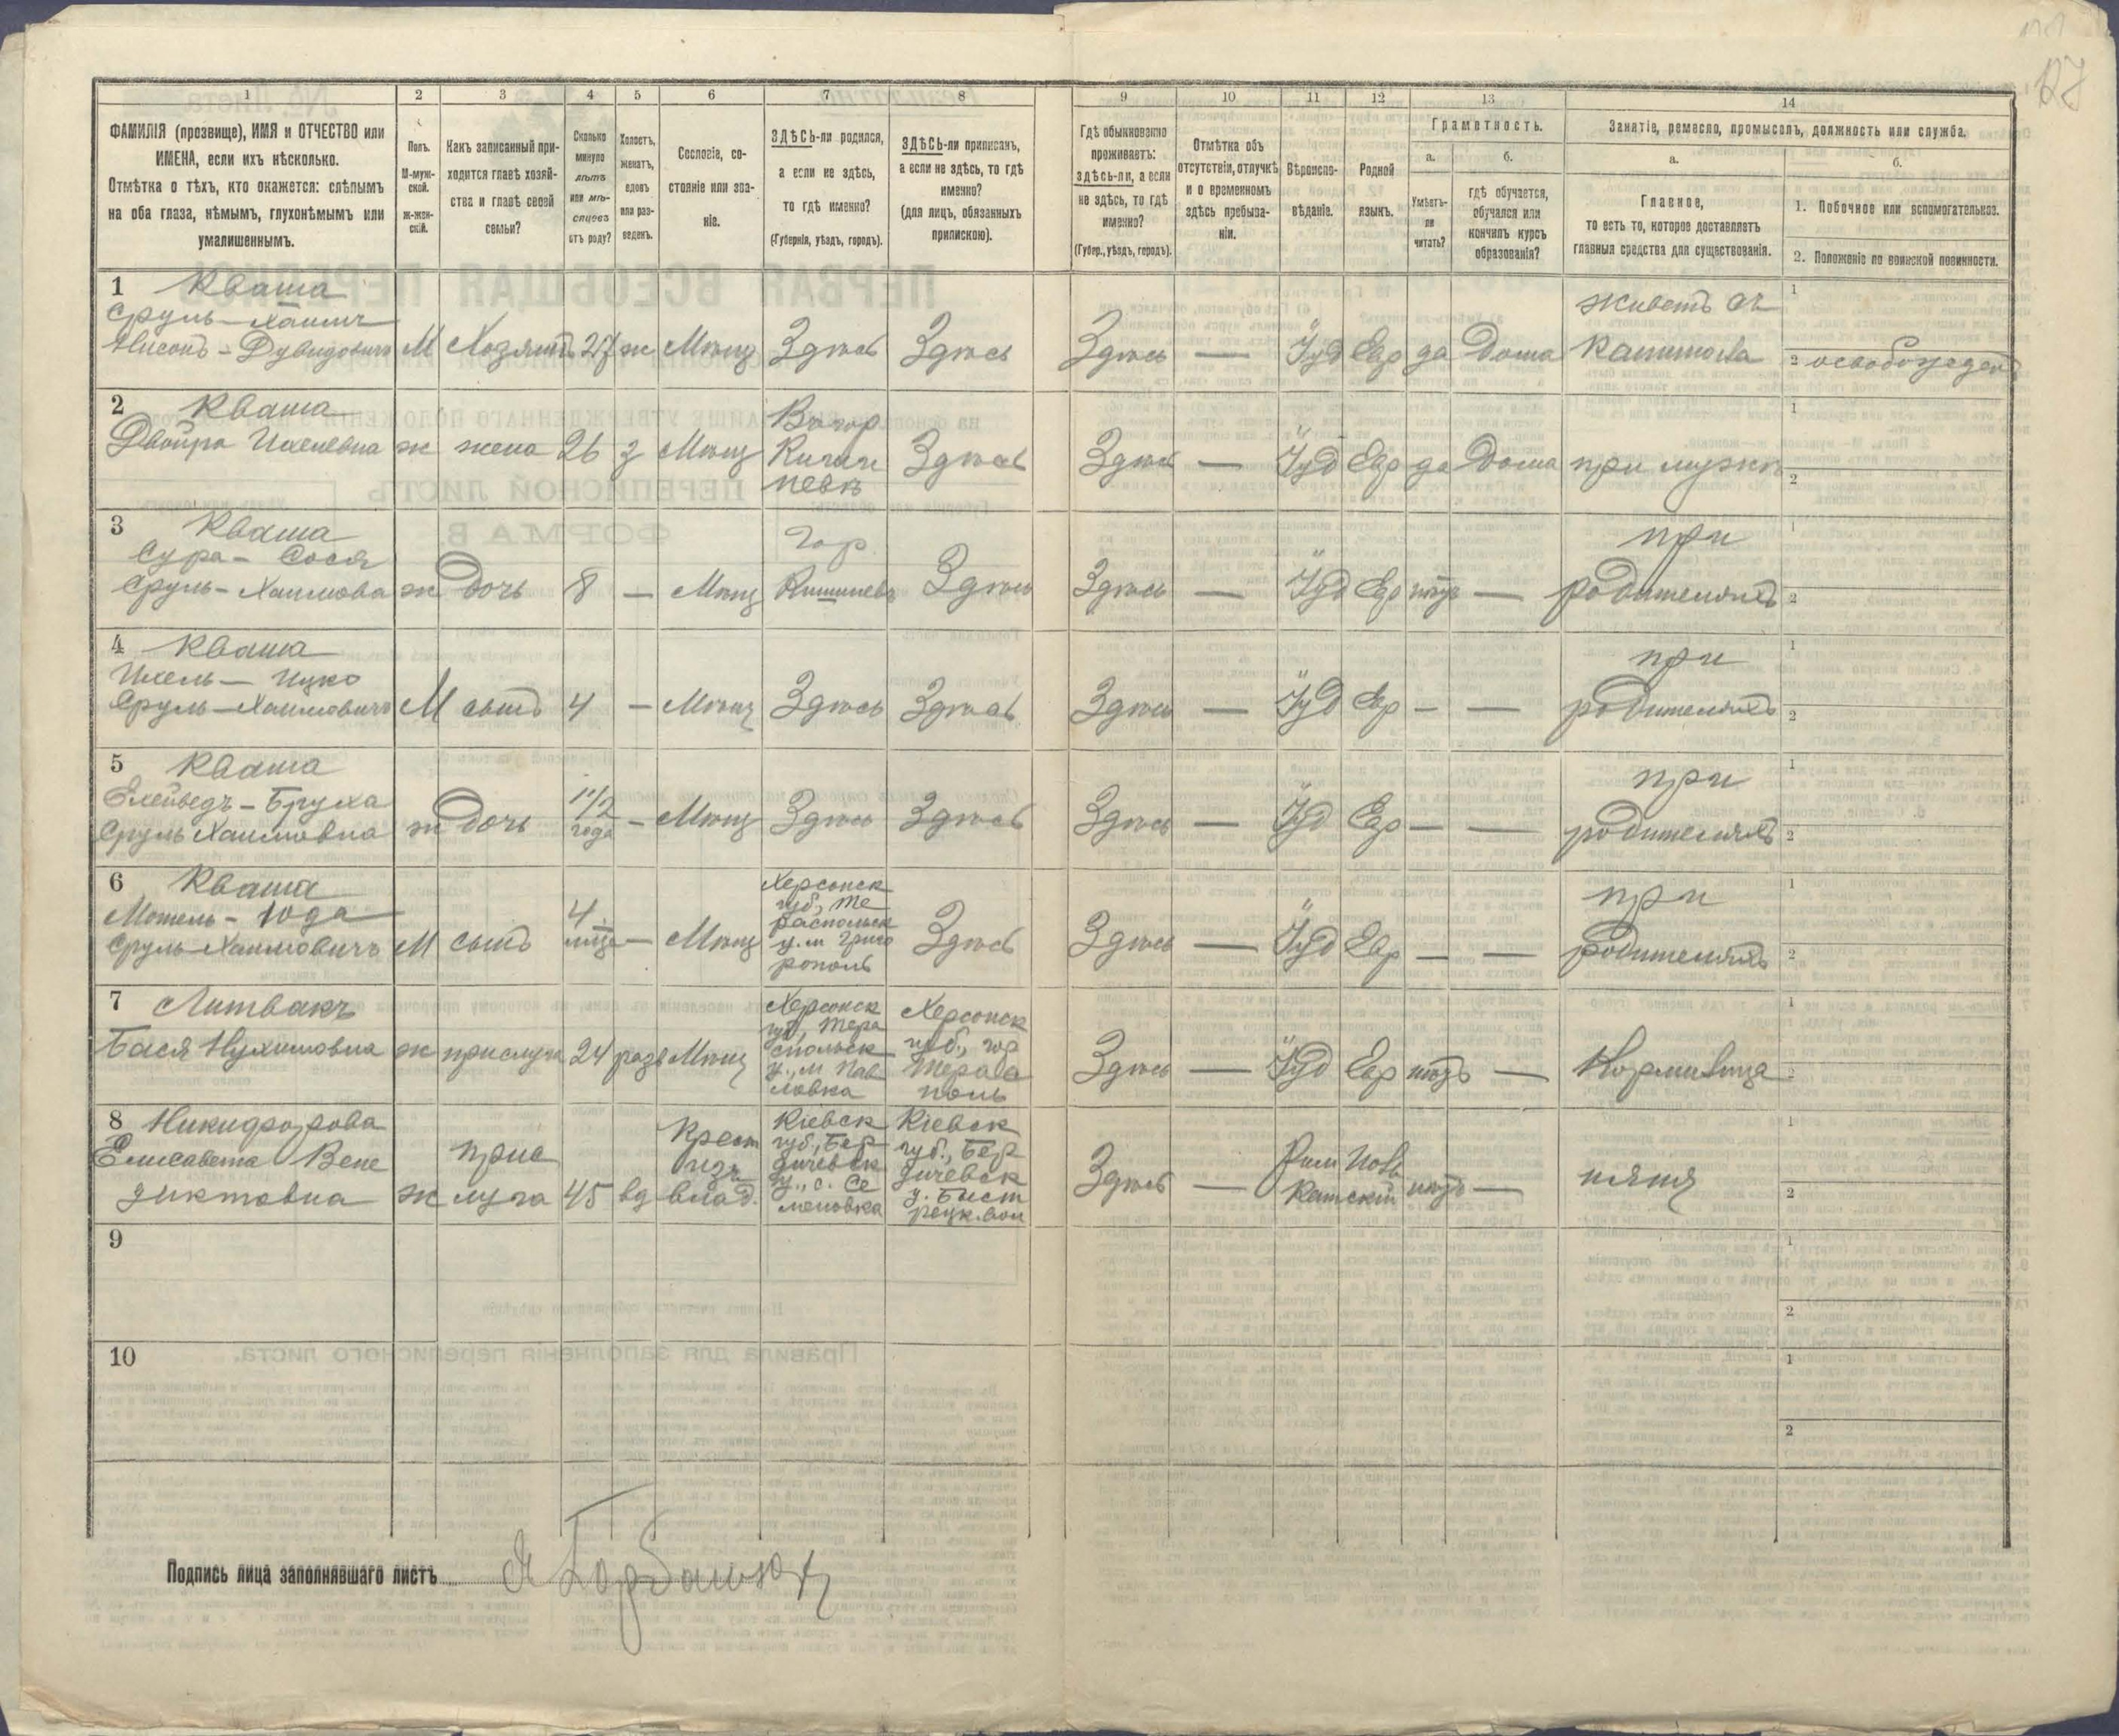 127
1 2 3 4 5 6 7 8 9 10 11 12 13 14
ФАМИЛІЯ (прозвище), ИМЯ и ОТЧЕСТВО или
ИМЕНА, если ихъ нѣсколько.
Отмѣтка о тѣхъ, кто окажется: слѣпымъ
на оба глаза, нѣмымъ, глухонѣмымъ или
умалишеннымъ.
Полъ.
М-муж-
ской.
ж-жен-
скій.
Какъ записанный при-
ходится главѣ хозяй-
ства и главѣ своей
семьи?
Сколько
минуло
лѣтъ
или мѣ-
сяцевъ
отъ роду?
Холостъ,
женатъ,
вдовъ
или раз-
веденъ.
Сословіе, со-
стояніе или зва-
ніе.
ЗДѢСЬ-ли родился,
а если не здѣсь,
то гдѣ именно?
(Губернія, уѣздъ, городъ).
ЗДѢСЬ-ли приписанъ,
а если не здѣсь, то гдѣ
именно?
(для лицъ, обязанныхъ
припискою).
Гдѣ обыкновенно
проживаетъ:
здѣсь-ли, а если
не здѣсь, то гдѣ
именно?
(Губер., уѣздъ, городъ).
Отмѣтка объ
отсутствіи, отлучкѣ
и о временномъ
здѣсь пребыва-
ніи.
Вѣроиспо-
вѣданіе.
Родной
языкъ.
Грамотность.
а.
Умѣетъ-
ли
читать?
б.
гдѣ обучается,
обучался или
кончилъ курсъ
образованія?
Занятіе, ремесло, промыселъ, должность или служба.
а.
Главное,
то есть то, которое доставляетъ
главныя средства для существованія.
б.
1. Побочное или вспомогательное.
2. Положеніе по воинской повинности.
1 Кваша
Сруль-Хаимъ
Нисонъ - Дувидовичъ М Хозяинъ 27 ж Мѣщ Здѣсь Здѣсь Здѣсь — Іуд Евр да Дома
живетъ съ
капитала
1
2 освобожденъ
2 Кваша
Двойра Ихелевна ж жена 26 з Мѣщ
Въ гор
Киши
невѣ
Здѣсь Здѣсь — Іуд Евр да Дома при мужѣ
1
2
3 Кваша
Сура - Сося
Сруль - Хаимова ж Дочь 8 — Мѣщ
Гор
Кишиневъ
Здѣсь Здѣсь — Іуд Евр нѣтъ —
при
родителяхъ
1
2
4 Кваша
Ихель - Ицко
Сруль-Хаимовичъ М сынъ 4 — Мѣщ Здѣсь Здѣсь Здѣсь — Іуд Евр — —
при
родителяхъ
1
2
5 Кваша
Ехейведъ - Бруха
Сруль Хаимовна ж Дочь
1 1/2
года
— Мѣщ Здѣсь Здѣсь Здѣсь — Іуд Евр — —
при
родителяхъ
1
2
6 Кваша
Мотель - Юда
Сруль-Хаимовичъ М сынъ
4
мѣсяца
— Мѣщ
Херсонск
губ., Ти
распольск
у. м Григо
рополь
Здѣсь Здѣсь — Іуд Евр — —
при
родителяхъ
1
2
7 Литвакъ
Бася Нухимовна ж прислуга 24 разв Мѣщ
Херсонск
губ, Тира
спольск
у., м Пав
ловка
Херсонск
губ., гор
Тирас
поль
Здѣсь — Іуд Евр нѣтъ — Кормилица
1
2
8 Никифорова
Елисавета Вене
диктовна ж
прис
луга
45 вд
Крест
изъ
влад.
Кіевск
губ., Бер
дичевск
у., с. Се
меновка
Кіевск
губ., Бер
дичевск
у. Бист
рецк. вол
Здѣсь —
Рим
Катскій
Поль
нѣтъ — няня
1
2
9
1
2
10
1
2
Подпись лица заполнявшаго листъ